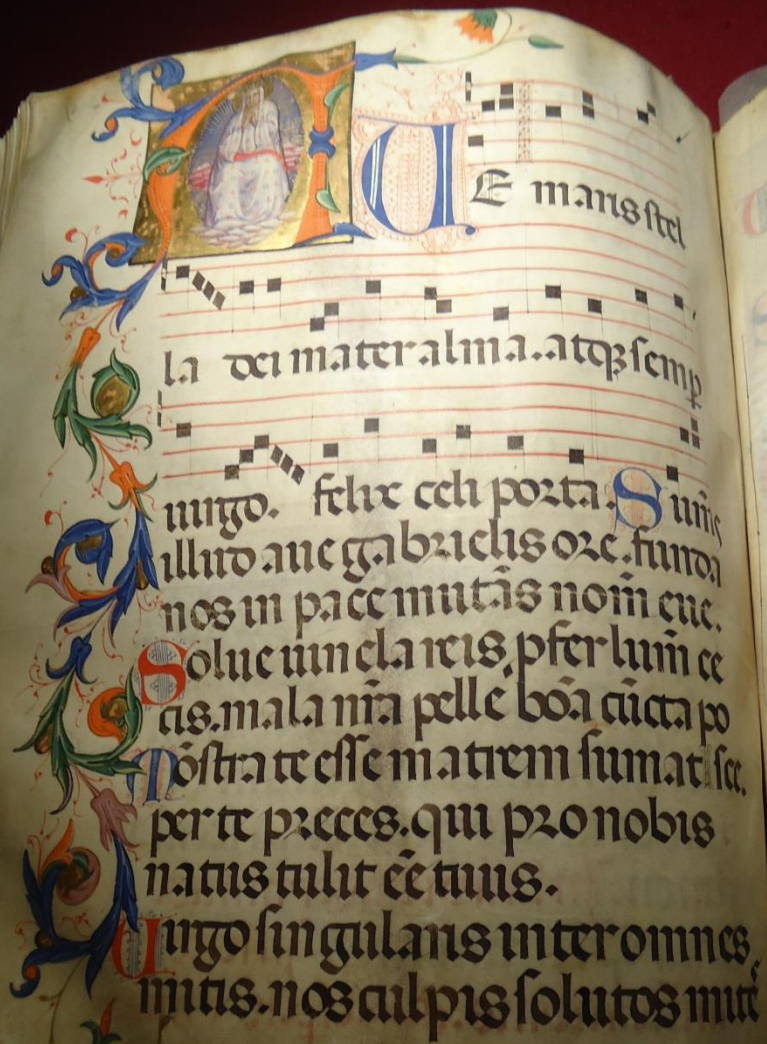 AUE maris stel
la dei mater alma. atqꝫ semꝑ
uirgo. felix celi porta. Sumēs
illud aue gabrielis ore. funda
nos in pace mutās nom̄ eue.
Solue uincla reis. ꝓfer lum̄ ce
cis. mala nr̄a pelle bōa cūcta po
Mōstra te esse matrem sumat sce.
per te preces. qui pro nobis
natus tulit eē̄ tuus.
Uirgo singularis inter omnes
mitis. nos culpis solutos mite